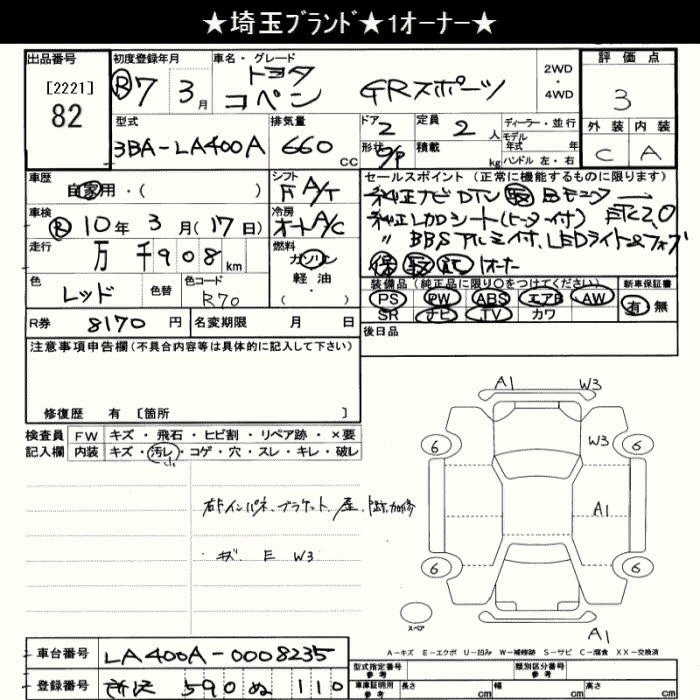 ★埼玉ブランド★1オーナー★
出品番号 初度登録年月 車名・グレード 2WD・4WD 評価点
[2221]
82
R7 3月 トヨタ コペン GRスポーツ 3
型式 排気量 ドア 定員 ディーラー・並行 外装 内装
3BA-LA400A 660cc 2 2人 モデル年式 年 C A
形状 積載 kg ハンドル 左・右
車歴 シフト セールスポイント(正常に機能するものに限ります)
自家用・( ) F A/T 純正ナビDTV Bモニター
車検 冷房 純正レカロシート(ヒーター付) ETC2.0
R 10年 3月(17日) オートA/C 〃 BBSアルミ付、LEDライト&フォグ
走行 燃料 保 取 記 1オーナー
万千908km ガソリン 軽油・( )
色 色替 色コード 装備品(純正品に限り○をつけてください) 新車保証書
レッド R70 PS PW ABS エアB AW 有 無
SR ナビ TV カワ
R券 8170円 名変期限 月 日 後日品
注意事項申告欄(不具合内容等は具体的に記入して下さい)
修復歴 有 [箇所 ]
検査員 FW キズ・飛石・ヒビ割・リペア跡・×要
記入欄 内装 キズ・汚レ・コゲ・穴・スレ・キレ・破レ
小
A1 W3
6 W3 6
A1
6 6
スペア
A1
キズ E W3
A-キズ E-エクボ U-凹み W-補修跡 S-サビ C-腐食 XX-交換済
車台番号 LA400A-0008235
登録番号 所沢 590 ぬ 110
型式指定番号 参考 類別区分番号 参考
車庫証明用 参考 長さ cm 幅 cm 高さ cm